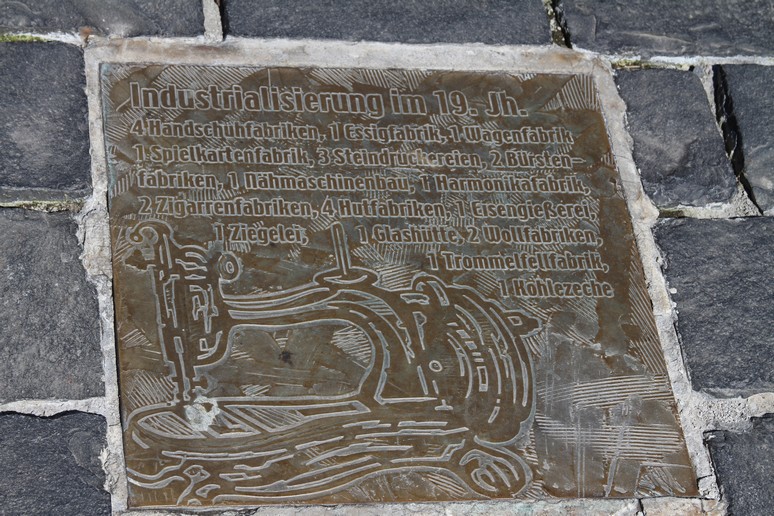 Industrialisierung im 19. Jh.
4 Handschuhfabriken, 1 Essigfabrik, 1 Wagenfabrik
1 Spielkartenfabrik, 3 Steindruckereien, 2 Bürsten-
fabriken, 1 Nähmaschinenbau, 1 Harmonikafabrik,
2 Zigarrenfabriken, 4 Hutfabriken, 1 Eisengießerei,
1 Ziegelei, 1 Glashütte, 2 Wollfabriken,
1 Trommelfellfabrik,
1 Kohlezeche